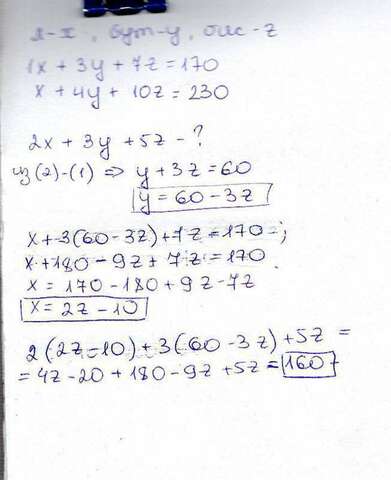 я-x, бут-y, бис-z
1x + 3y + 7z = 170
x + 4y + 10z = 230
2x + 3y + 5z - ?
из (2)-(1) ⇒ y + 3z = 60
y = 60 - 3z
x + 3(60 - 3z) + 7z = 170;
x + 180 - 9z + 7z = 170
x = 170 - 180 + 9z - 7z
x = 2z - 10
2(2z - 10) + 3(60 - 3z) + 5z =
= 4z - 20 + 180 - 9z + 5z = 160